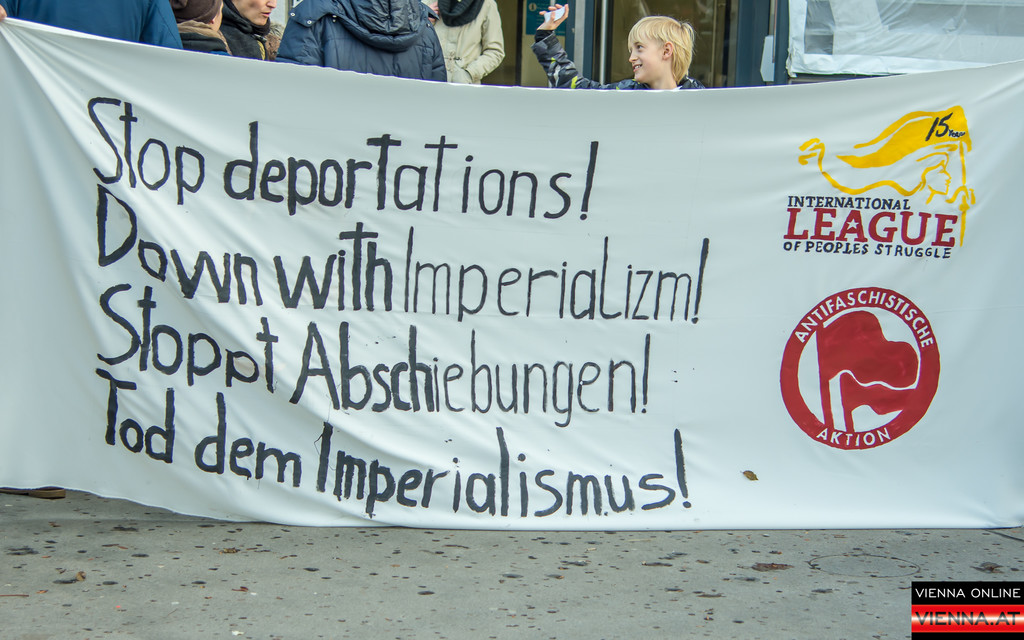 Stop deportations!
Down with Imperializm!
Stoppt Abschiebungen!
Tod dem Imperialismus!
15 Years
INTERNATIONAL
LEAGUE
OF PEOPLES STRUGGLE
ANTIFASCHISTISCHE
AKTION
VIENNA ONLINE
VIENNA.AT